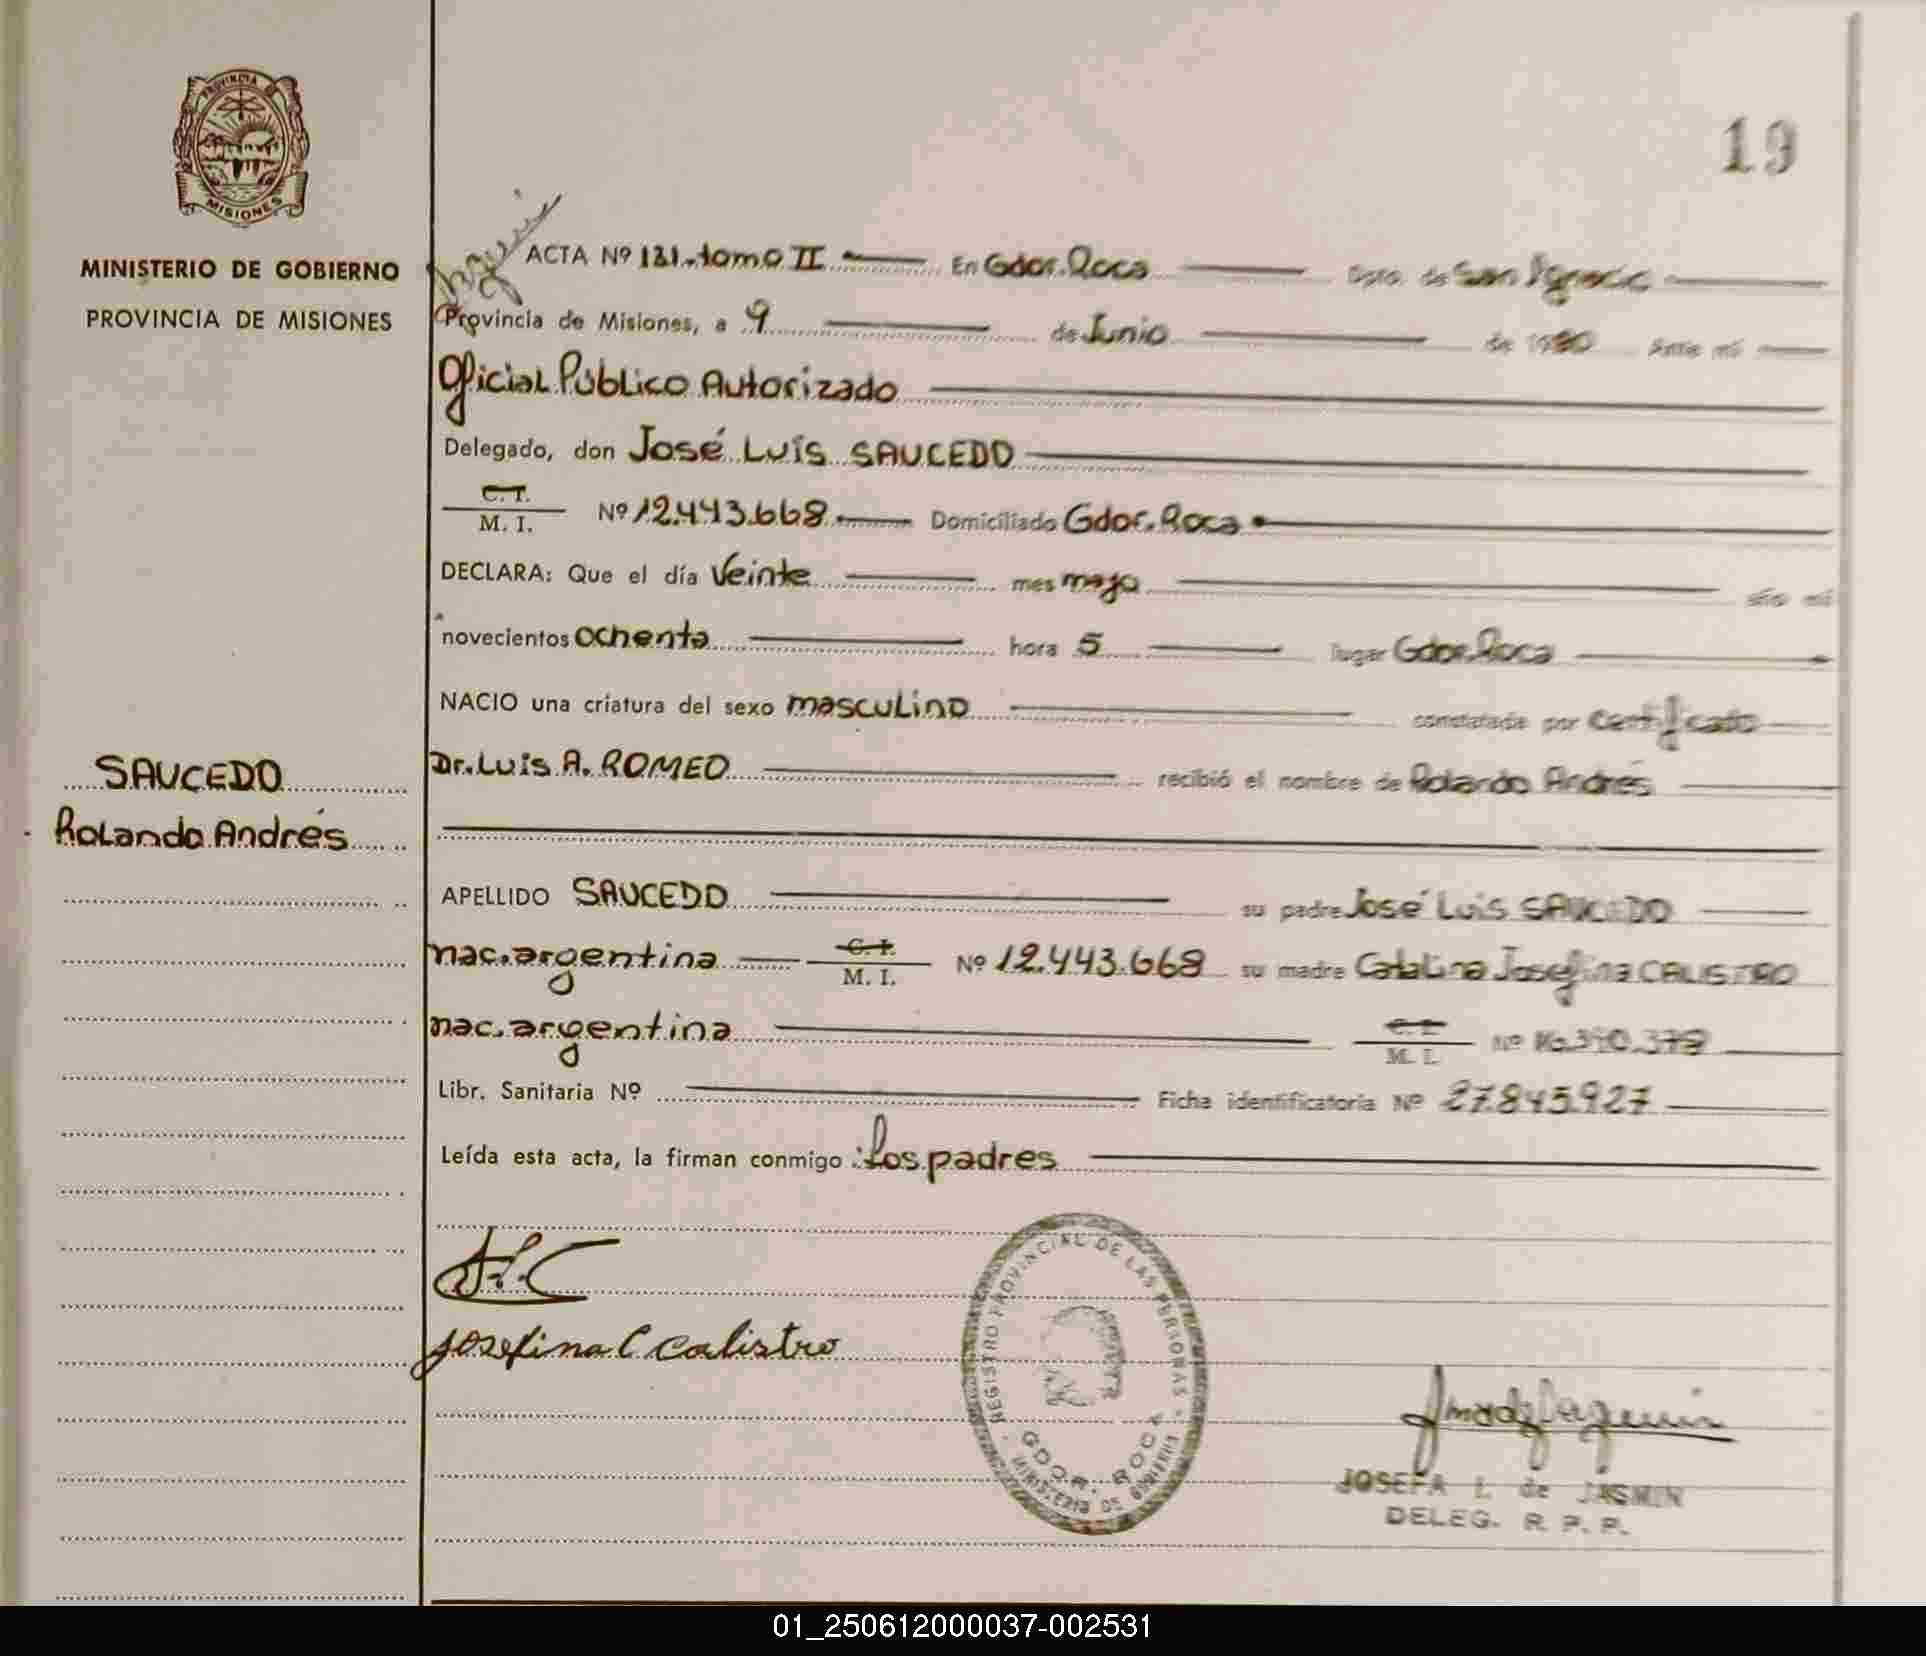 PROVINCIA DE
MISIONES
MINISTERIO DE GOBIERNO
PROVINCIA DE MISIONES
19
ACTA Nº 131. tomo II En Gdor. Roca Dpto. de San Ignacio
Provincia de Misiones, a 9 de Junio de 1980 Ante mí
Oficial Público Autorizado
Delegado, don José Luis SAUCEDO
C. I.
M. I. Nº 12.443.668 Domiciliado Gdor. Roca
DECLARA: Que el día Veinte mes mayo año mil
novecientos ochenta hora 5 lugar Gdor. Roca
NACIO una criatura del sexo masculino constatada por certificado
SAUCEDO
Rolando Andrés
Dr. Luis A. ROMEO recibió el nombre de Rolando Andrés
APELLIDO SAUCEDO su padre José Luis SAUCEDO
nac. argentina C. I.
M. I. Nº 12.443.668 su madre Catalina Josefina CALISTRO
nac. argentina C. I.
M. I. Nº
Libr. Sanitaria Nº Ficha identificatoria Nº 27.845.927
Leída esta acta, la firman conmigo: Los padres
Josefina C Calistro
REGISTRO PROVINCIAL DE LAS PERSONAS
GDOR. ROCA
MINISTERIO DE GOBIERNO
JOSEFA I. de JASMIN
DELEG. R. P. P.
01_250612000037-002531